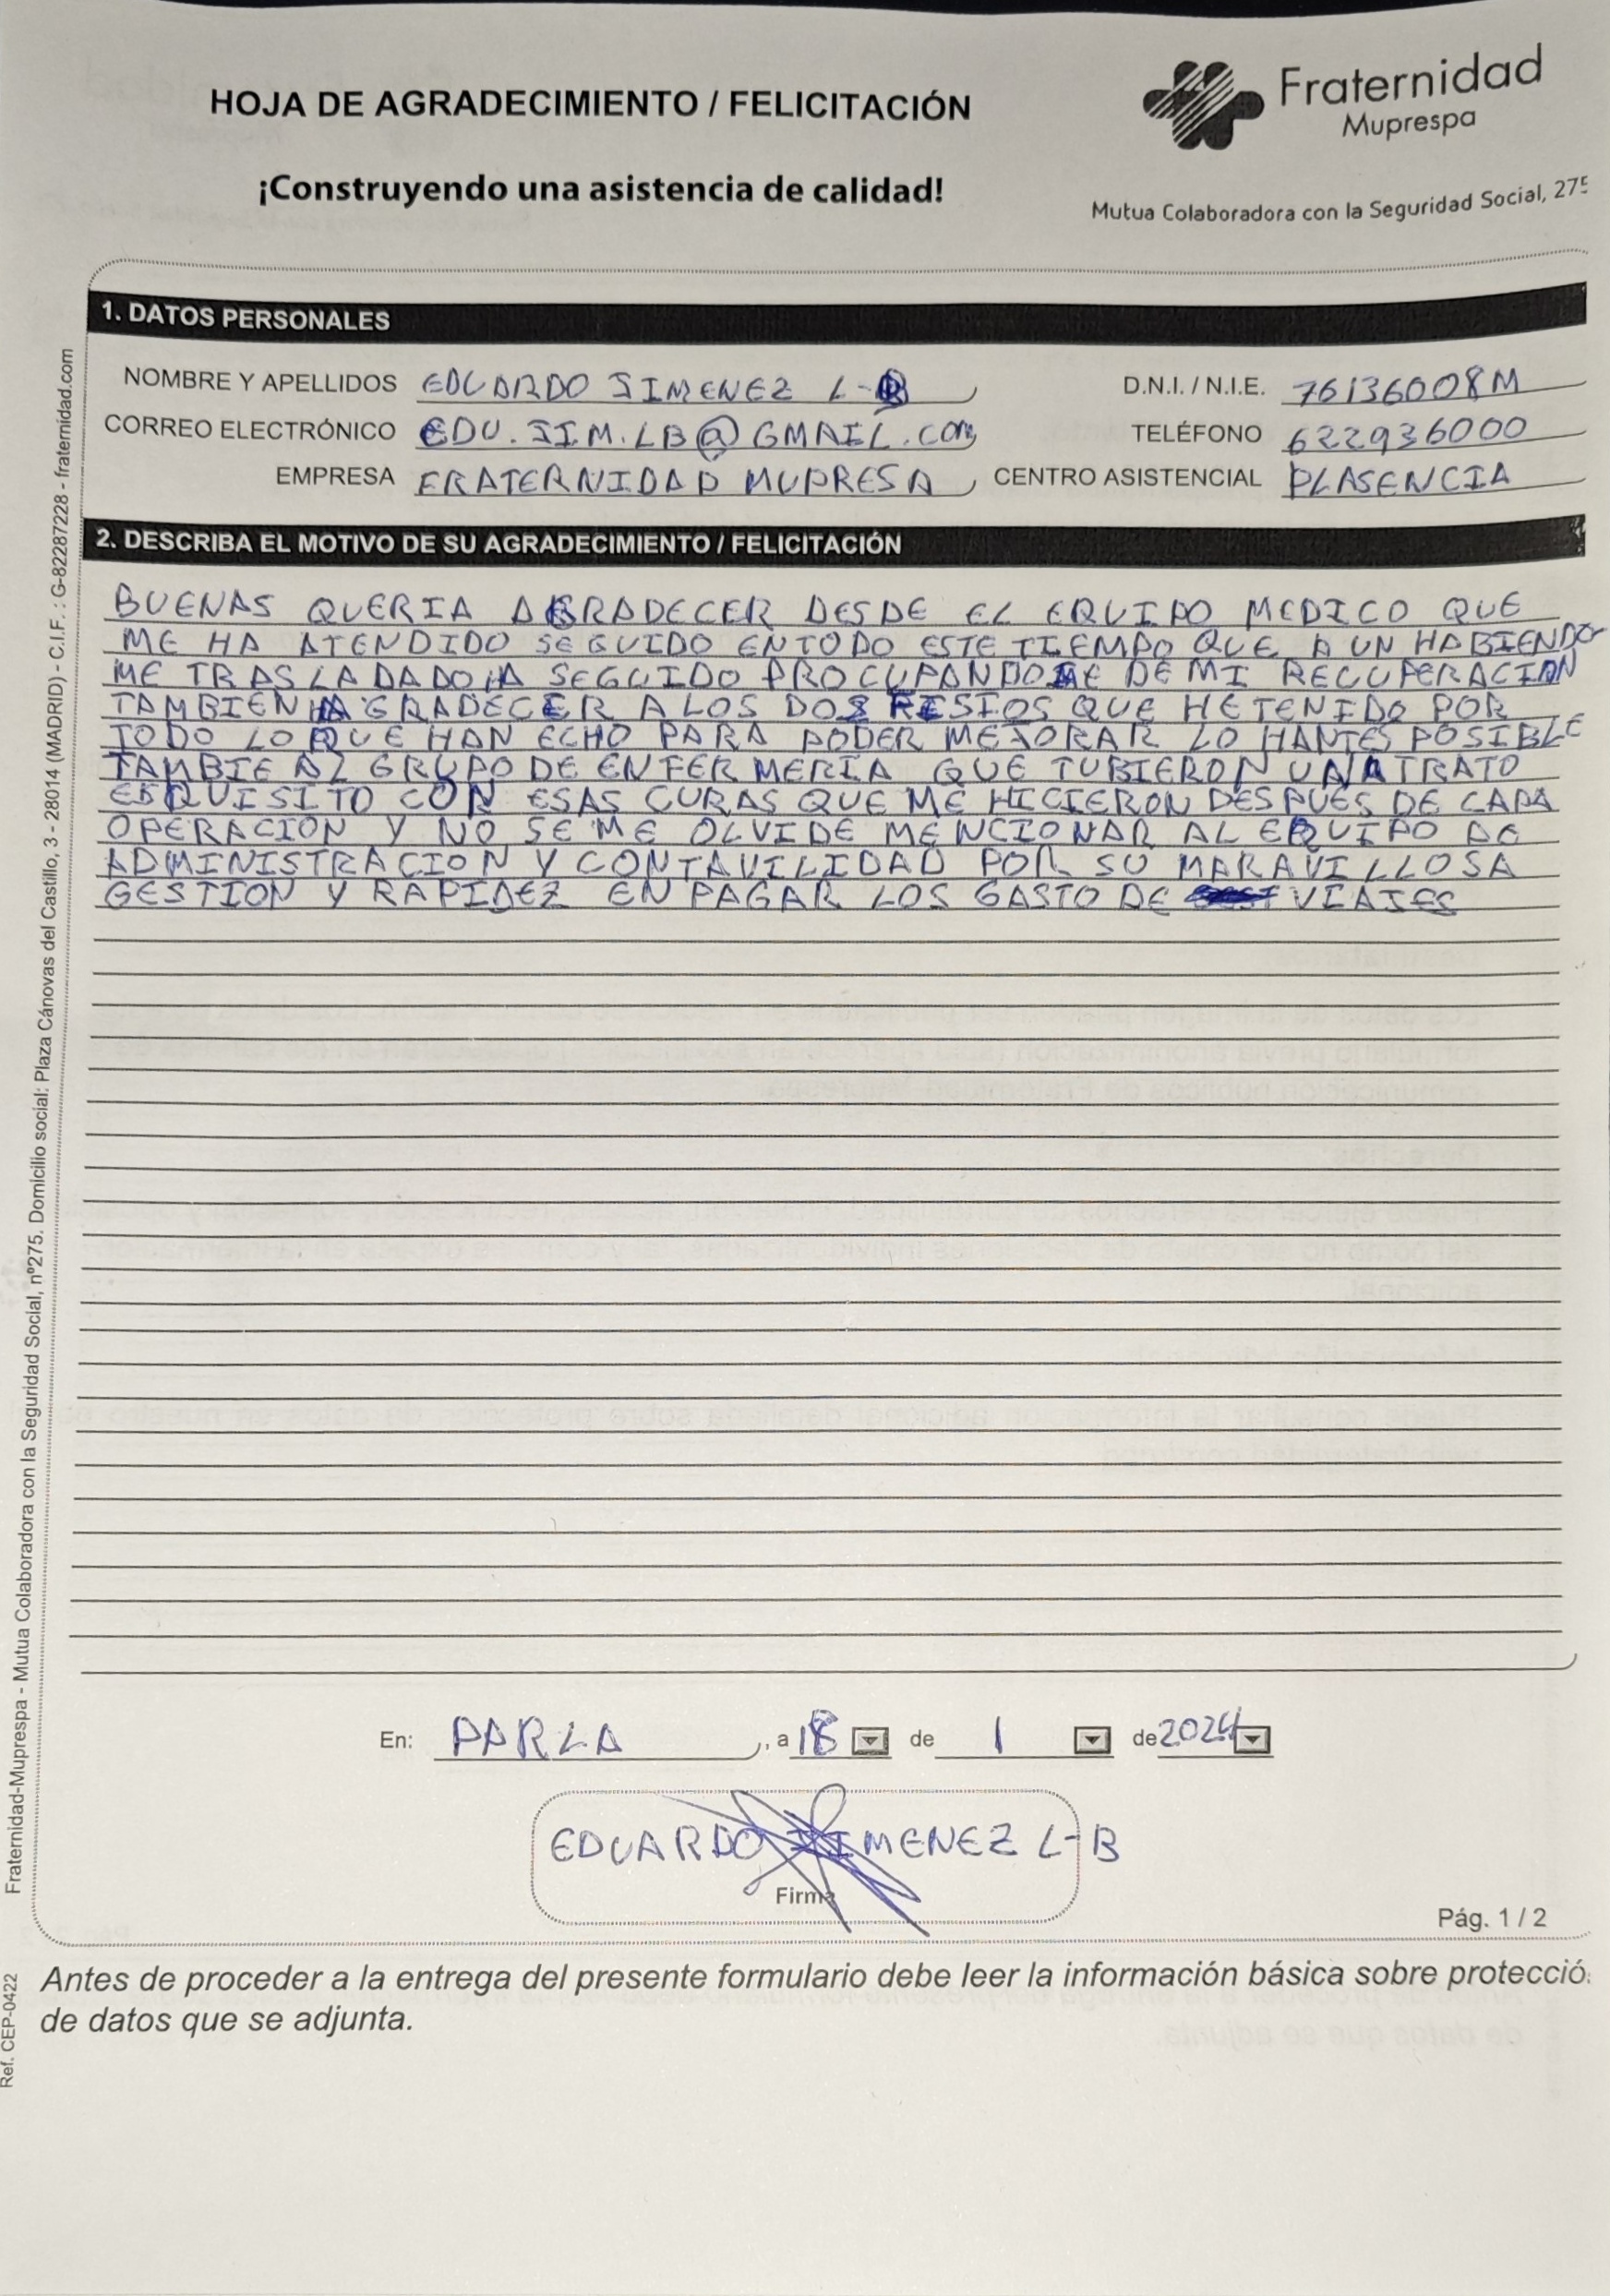 HOJA DE AGRADECIMIENTO / FELICITACIÓN
¡Construyendo una asistencia de calidad!
Fraternidad
Muprespa
Mutua Colaboradora con la Seguridad Social, 275
1. DATOS PERSONALES
NOMBRE Y APELLIDOS EDUARDO JIMENEZ L-B D.N.I. / N.I.E. 76136008M
CORREO ELECTRÓNICO EDU.JIM.LB@GMAIL.COM TELÉFONO 622936000
EMPRESA FRATERNIDAD MUPRESA CENTRO ASISTENCIAL PLASENCIA
2. DESCRIBA EL MOTIVO DE SU AGRADECIMIENTO / FELICITACIÓN
BUENAS QUERIA AGRADECER DESDE EL EQUIPO MEDICO QUE
ME HA ATENDIDO SEGUIDO EN TODO ESTE TIEMPO QUE A UN HABIENDO
ME TRASLADADO A SEGUIDO PROCUPANDOSE DE MI RECUPERACION
TAMBIEN AGRADECER A LOS DOS FISIOS QUE HE TENIDO POR
TODO LO QUE HAN ECHO PARA PODER MEJORAR LO HANTES POSIBLE
TAMBIE AL GRUPO DE ENFERMERIA QUE TUBIERON UN TRATO
ESQUISITO CON ESAS CURAS QUE ME HICIERON DESPUES DE CADA
OPERACION Y NO SE ME OLVIDE MENCIONAR AL EQUIPO DE
ADMINISTRACION Y CONTAVILIDAD POR SU MARAVILLOSA
GESTION Y RAPIDEZ EN PAGAR LOS GASTO DE VIAJES
En: PARLA, a 18 de 1 de 2024
EDUARDO JIMENEZ L-B
Firma
Pág. 1 / 2
Antes de proceder a la entrega del presente formulario debe leer la información básica sobre protecció
de datos que se adjunta.
Fraternidad-Muprespa - Mutua Colaboradora con la Seguridad Social, nº275. Domicilio social: Plaza Cánovas del Castillo, 3 - 28014 (MADRID) - C.I.F. : G-82287228 - fraternidad.com
Ref. CEP-0422